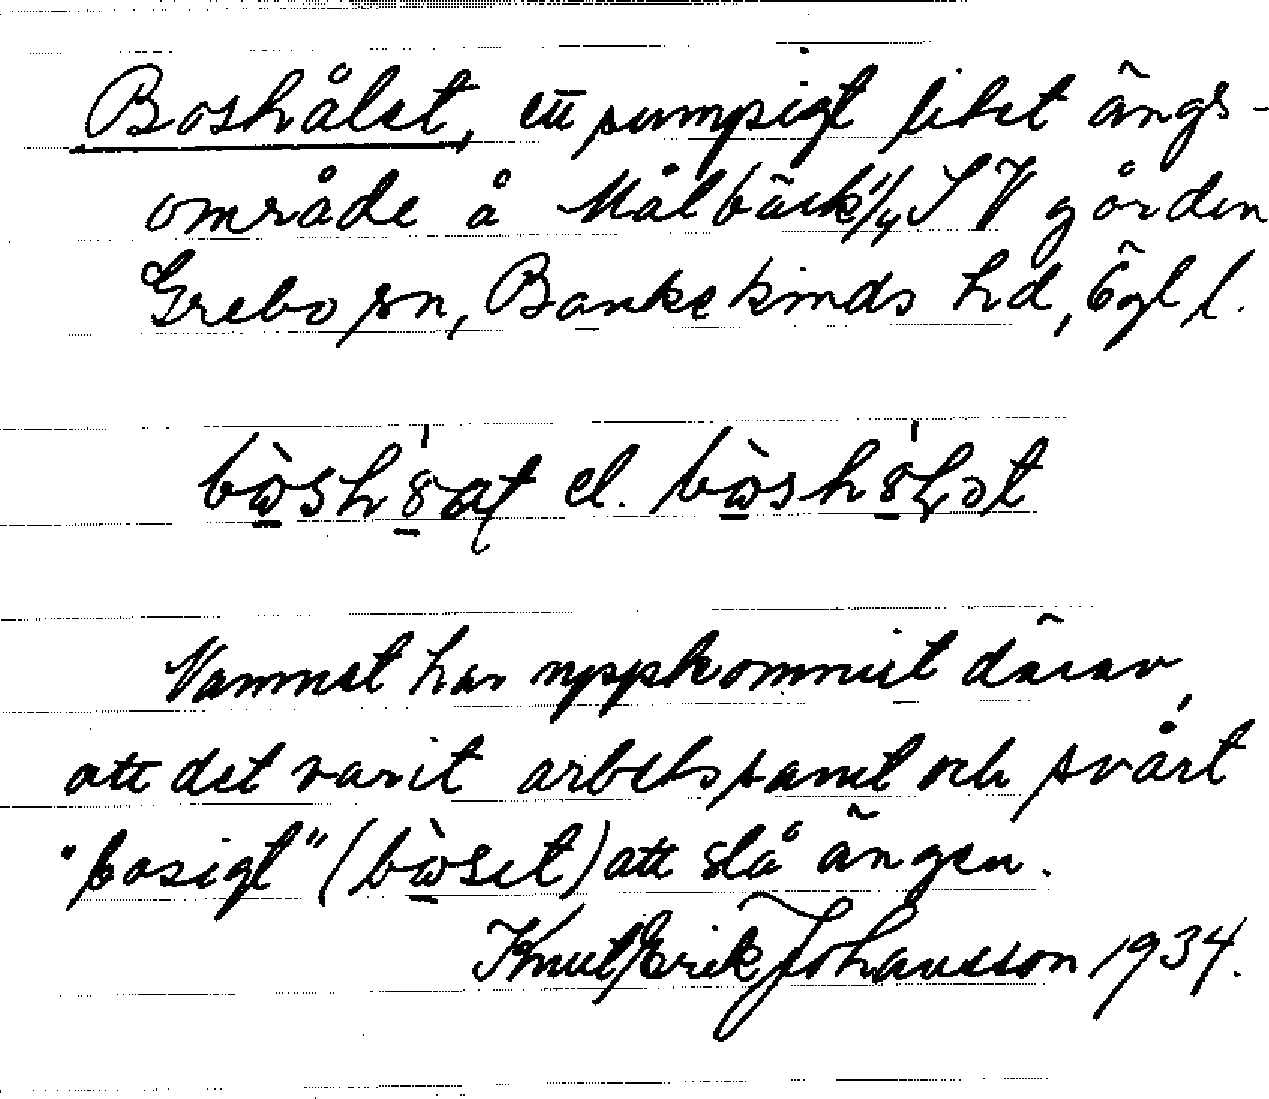 Boshålet, ett sumpigt litet ängs-
område å Målbäck 1/4 SV gården
Grebo sn, Bankekinds hd, Ögl l.
el.
Namnet har uppkommit därav,
att det varit arbetsamt och svårt
"bosigt" (bòset) att slå ängen.
Knut Erik Johansson 1934.